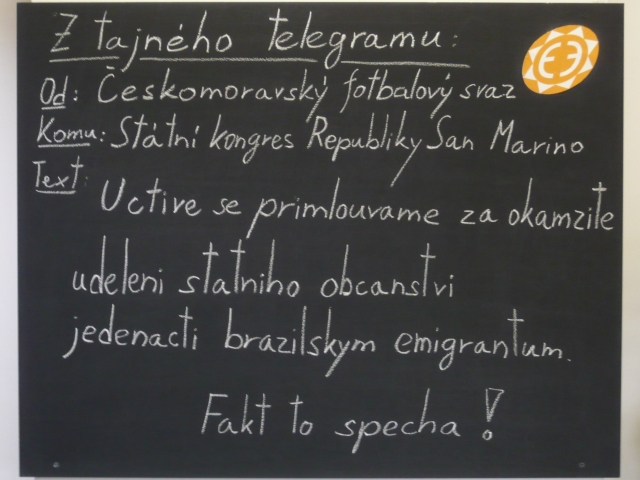 Z tajného telegramu:
Od: Českomoravský fotbalový svaz
Komu: Státní kongres Republiky San Marino
Text:
Uctive se primlouvame za okamzite
udeleni statniho obcanstvi
jedenacti brazilskym emigrantum.
Fakt to specha!